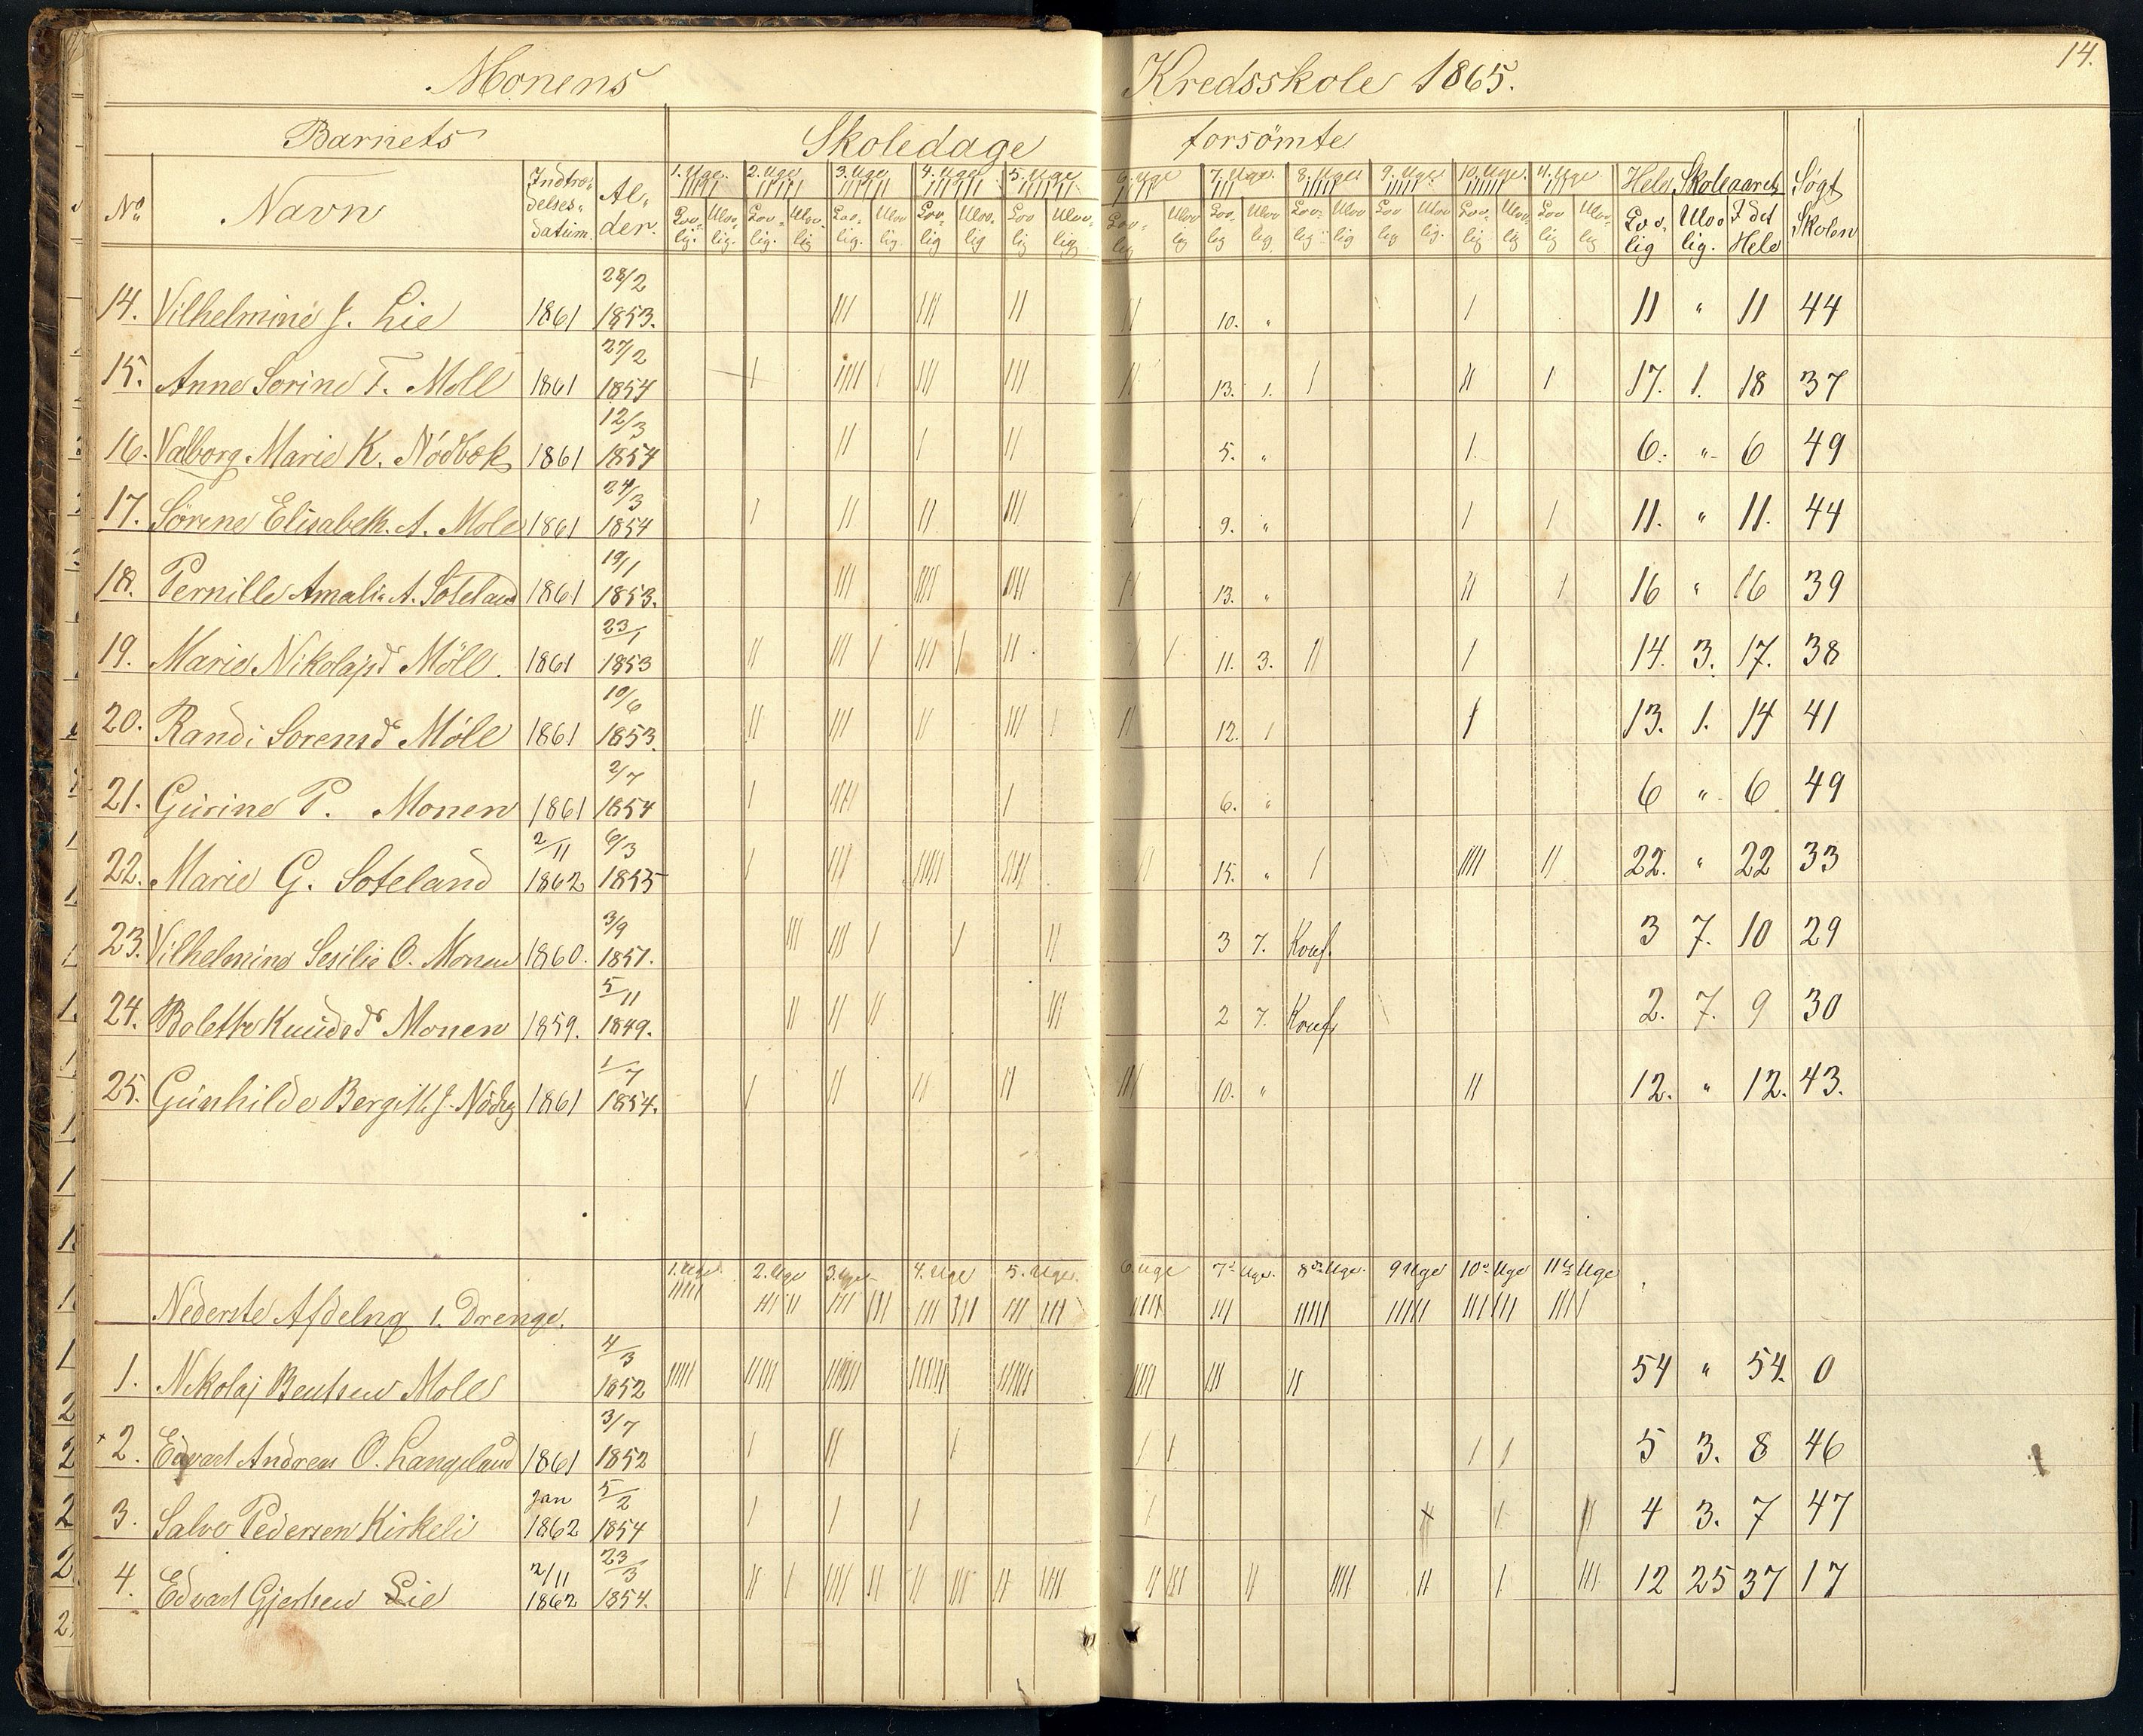 Monens Kredsskole 1865. 14.
Barnets Skoledage forsömte
No Navn Indtrædelsesdatum. Alder. 1. Uge. 2. Uge 3. Uge 4. Uge 5. Uge 6. Uge 7. Uge. 8. Uge 9. Uge 10. Uge. 11. Uge Hele Skoleaaret Søgt Skolen
Lovlig. Ulovlig. Lovlig. Ulovlig Lovlig. Ulovlig Lovlig Ulovlig Lovlig Ulovlig Lovlig Ulovlig Lovlig Ulovlig Lovlig Ulovlig Lovlig Ulovlig. Lovlig Ulovlig Lovlig Ulovlig Lovlig Ulovlig. I det Hele
14. Vilhelmine J. Lie 1861 28/2 1853. III III II II 10. " I 11 " 11 44
15. Anne Sorine T. Moll 1861 27/2 1854 I IIII I III III II 13. 1. I II I 17. 1. 18 37
16. Valborg Marie K. Nödbek 1861 12/3 1854 II I II 5. " 1. 6. " 6 49
17. Sörine Elisabeth. A. Mole 1861 24/3 1854 I II II III I 9. " I I 11. " 11. 44
18. Pernille Amalia A. Soteland 1861 19/1 1853. III IIII IIII II 13. " II I 16 " 16 39
19. Marie Nikolajsd Möll. 1861 23/1 1853 II III I III I II I I 11. 3. II I 14. 3. 17. 38
20. Randi Sorensd Möll 1861 10/6 1853. II III II III I II 12. 1 I 13. 1. 14 41
21. Gurine P. Monen 1861 2/7 1854 I IIII I 6. " 6 " 6 49
22. Marie G. Soteland 2/11 1862 6/3 1855 I III IIIII IIII II 15. " I IIII II 22. " 22 33
23. Vilhelmine Sesilie O. Monen 1860. 3/9 1851. III III I I II 3 7. Konf. 3 7. 10 29
24. Bolette Knudsd Monen 1859. 5/11 1849. II II II III 2 7. Konf. 2. 7. 9 30
25. Gunhilde Bergith J. Nödbg 1861 1/7 1854. I II II II III 10. " II 12. " 12. 43.
1. Uge. 2. Uge 3. Uge 4. Uge 5. Uge. 6. Uge 7. Uge. 8 Uge. 9 Uge 10 Uge 11 Uge
Nederste Afdelng 1. Drenge.
1. Nikolaj Bentsen Moll 4/3 1852 54 " 54. 0
2. Edvart Andreas O. Langeland 1861 3/7 1852 5 3. 8 46
3. Salve Pedersen Kirkeli Jan 1862 5/2 1854 4 3. 7 47
4. Edvart Gjertsen Lie 2/11 1862 23/3 1854. 12 25 37 17